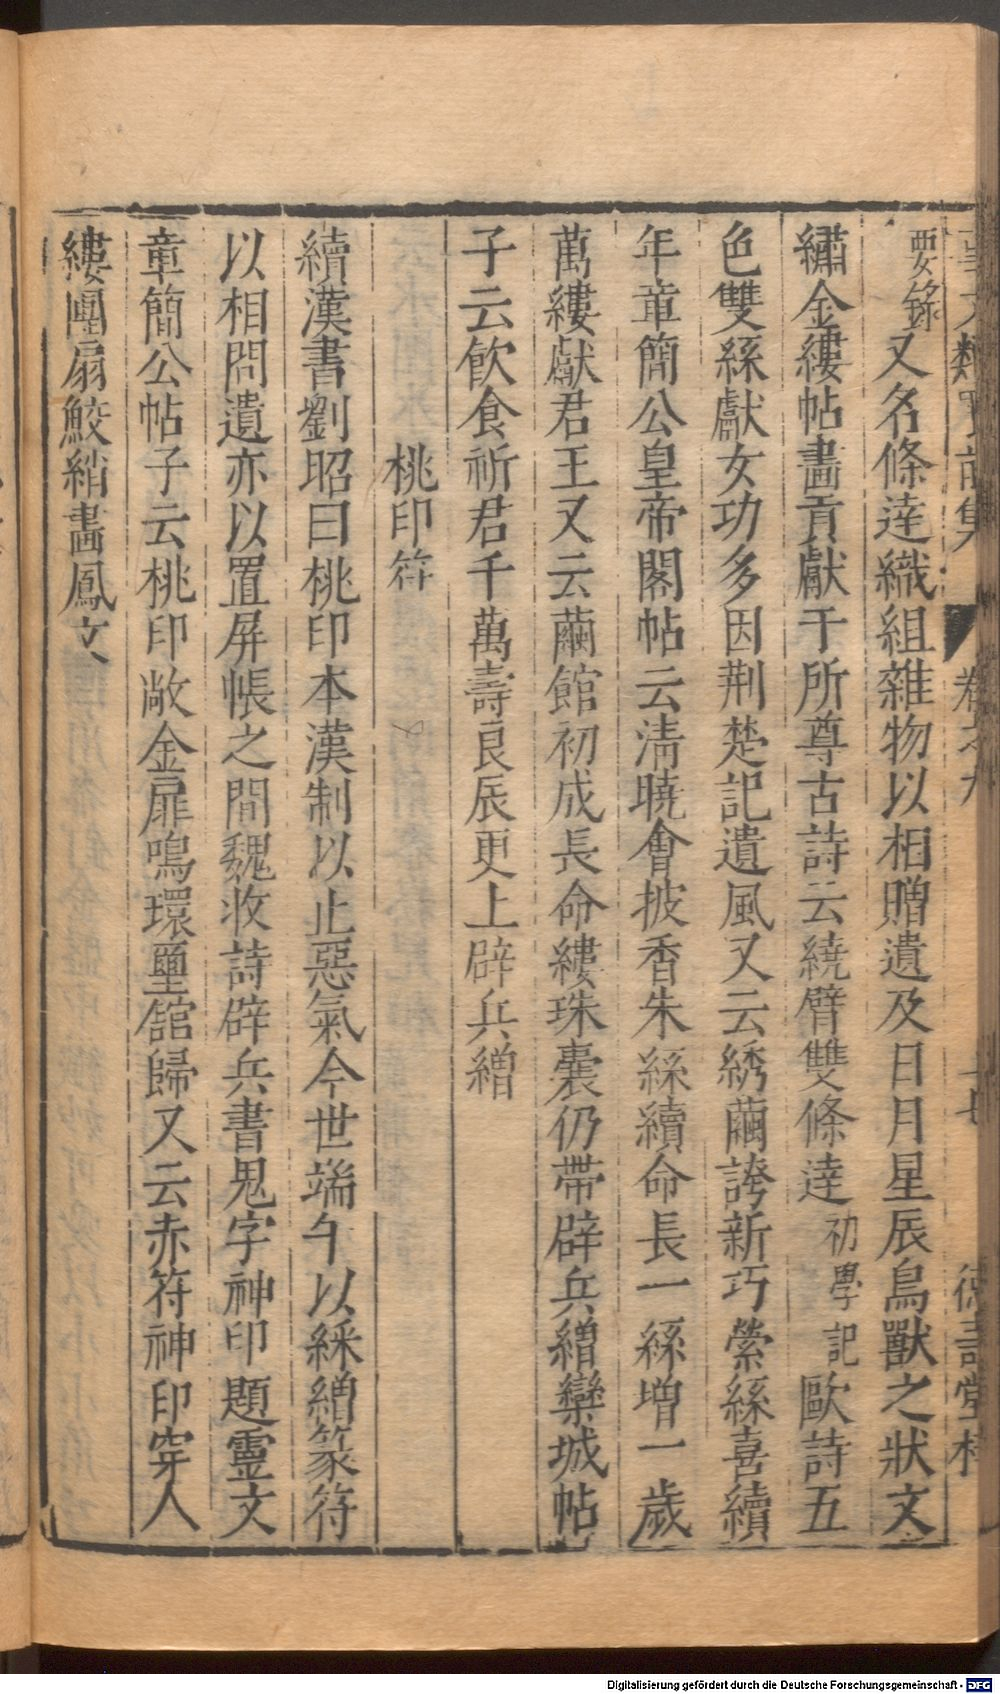 要錄又名條達織組雜物以相贈遺及日月星辰鳥獸之狀文
繡金縷帖畫貢獻于所尊古詩云繞臂雙條達初學記歐詩五
色雙絲獻女功多因荆楚記遺風又云綉繭誇新巧縈絲喜續
年章簡公皇帝閣帖云清曉會披香朱絲續命長一絲増一歲
萬縷獻君王又云繭館初成長命縷珠囊仍帶辟兵繒欒城帖
子云飲食祈君千萬壽良辰更上辟兵繒
桃印符
續漢書劉昭曰桃印本漢制以止惡氣今世端午以綵繒篆符
以相問遺亦以置屏帳之間魏收詩辟兵書鬼字神印題靈文
章簡公帖子云桃印敞金扉鳴環璽舘歸又云赤符神印穿人
縷團扇鮫綃畫鳳文
卷之九
Digitalisierung gefördert durch die Deutsche Forschungsgemeinschaft - DFG